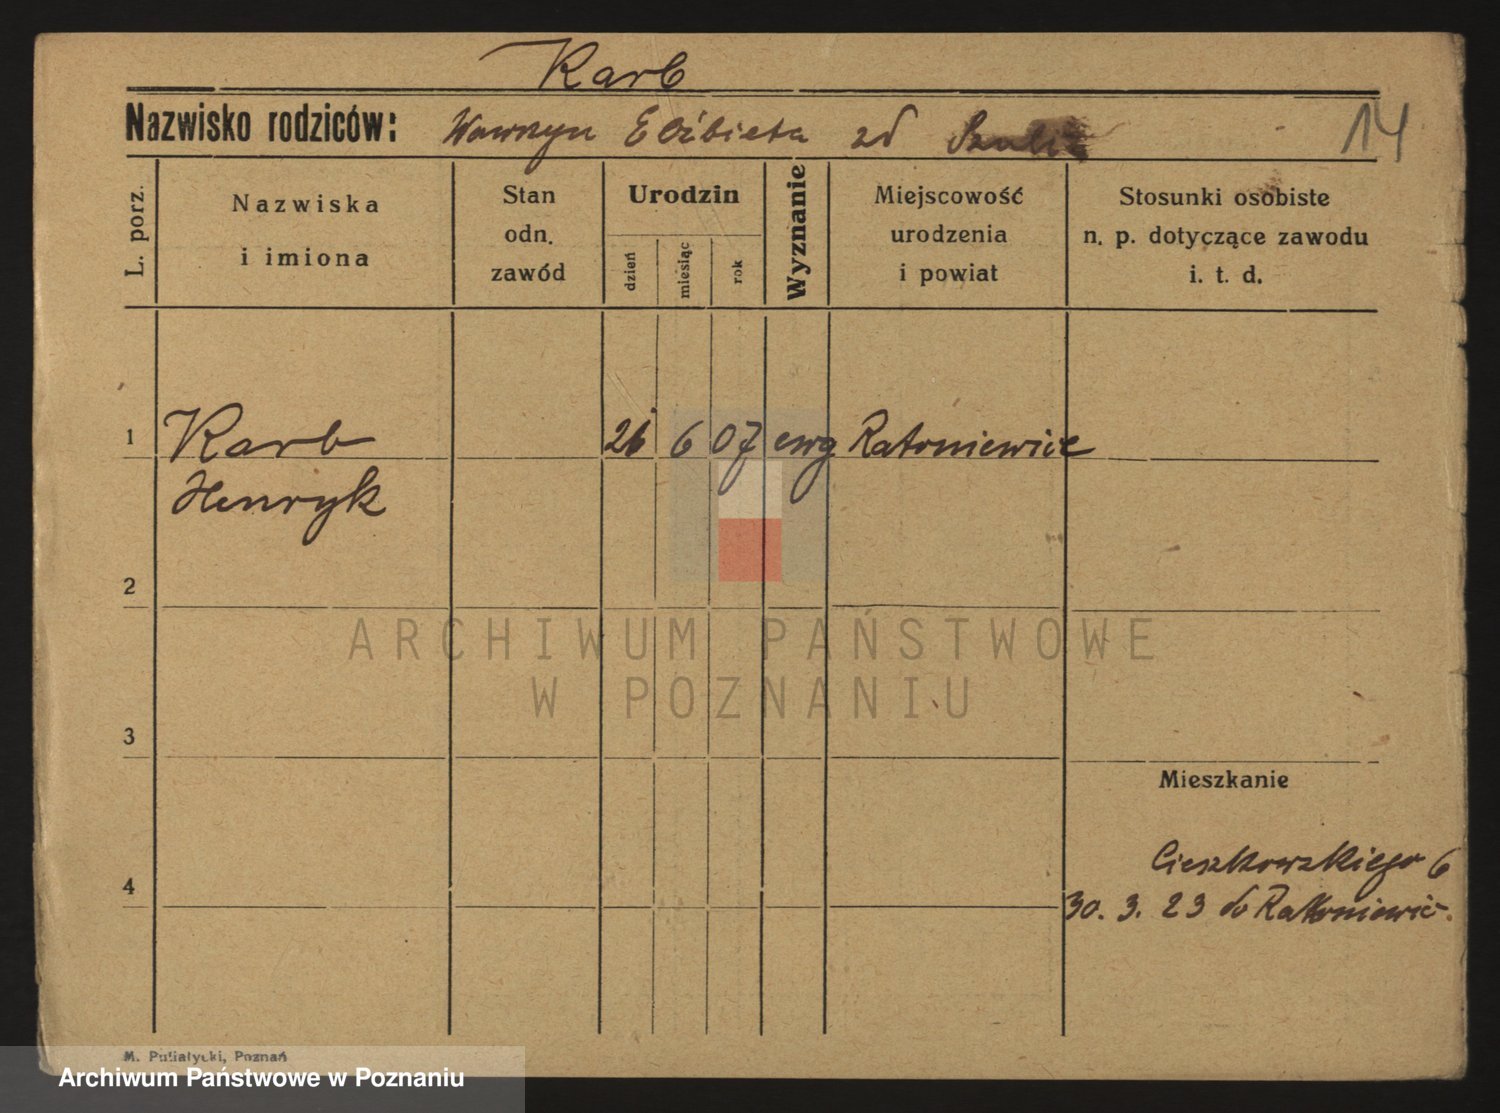 Karb
Nazwisko rodziców: Wawrzyn Elżbieta zd
14
L. porz.
Nazwiska
i imiona
Stan
odn.
zawód
Urodzin
dzień
miesiąc
rok
Wyznanie
Miejscowość
urodzenia
i powiat
Stosunki osobiste
n. p. dotyczące zawodu
i. t. d.
1 Karb 26 6 07 ewg Rakoniewice
Henryk
2
ARCHIWUM PAŃSTWOWE
W POZNANIU
3
Mieszkanie
Cieszkowskiego 6
4
30. 3. 23 do Rakoniewic.
M. Putiatycki, Poznań
Archiwum Państwowe w Poznaniu